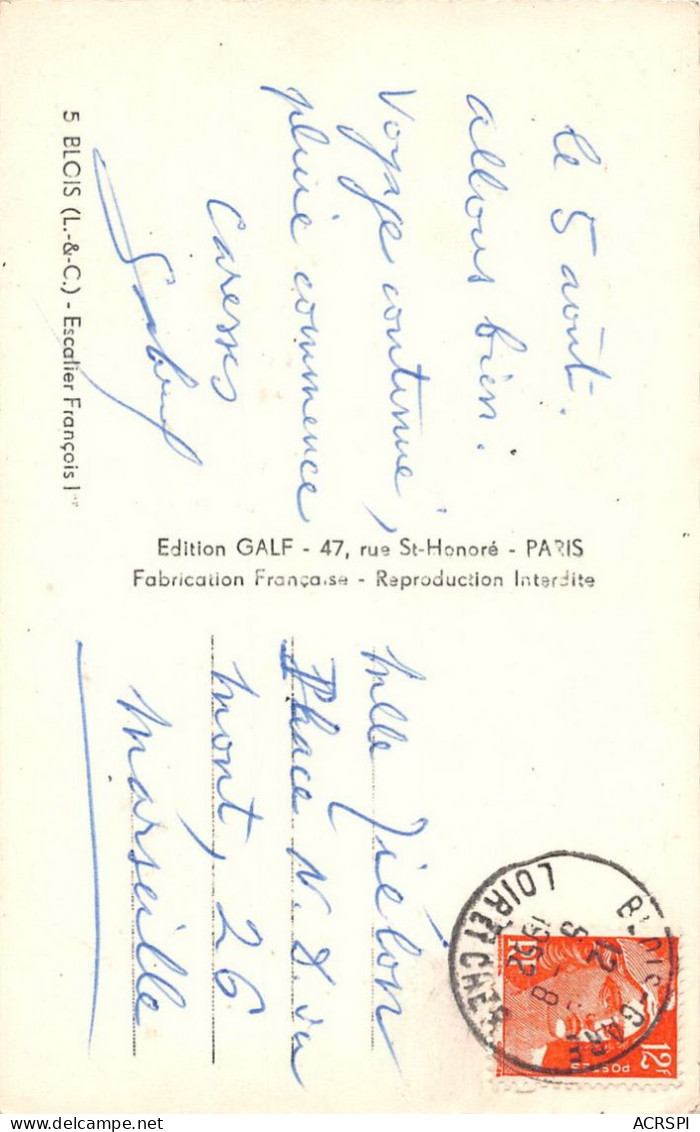 le 5 août.
allons bien.
Voyage continue,
pluie commence
Caresses
5 BLOIS (L.-&-C.) - Escalier François Ier
Edition GALF - 47, rue St-Honoré - PARIS
Fabrication Française - Reproduction Interdite
Mlle Jiélon
Place N. D. du
Mont, 26
Marseille
BLOIS-GARE
12
5 - 8
1952
LOIR ET CHER
12F
POSTES
ACRSPI